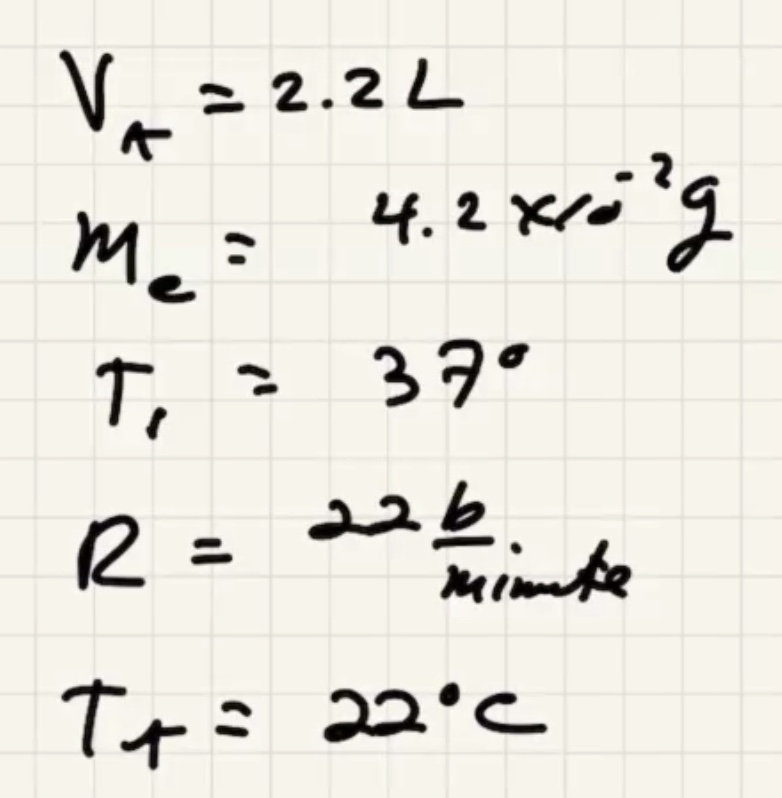 V_A = 2.2 L
m_e = 4.2 x 10⁻² g
T_1 = 37°
R = 22 b/minute
T_f = 22°C